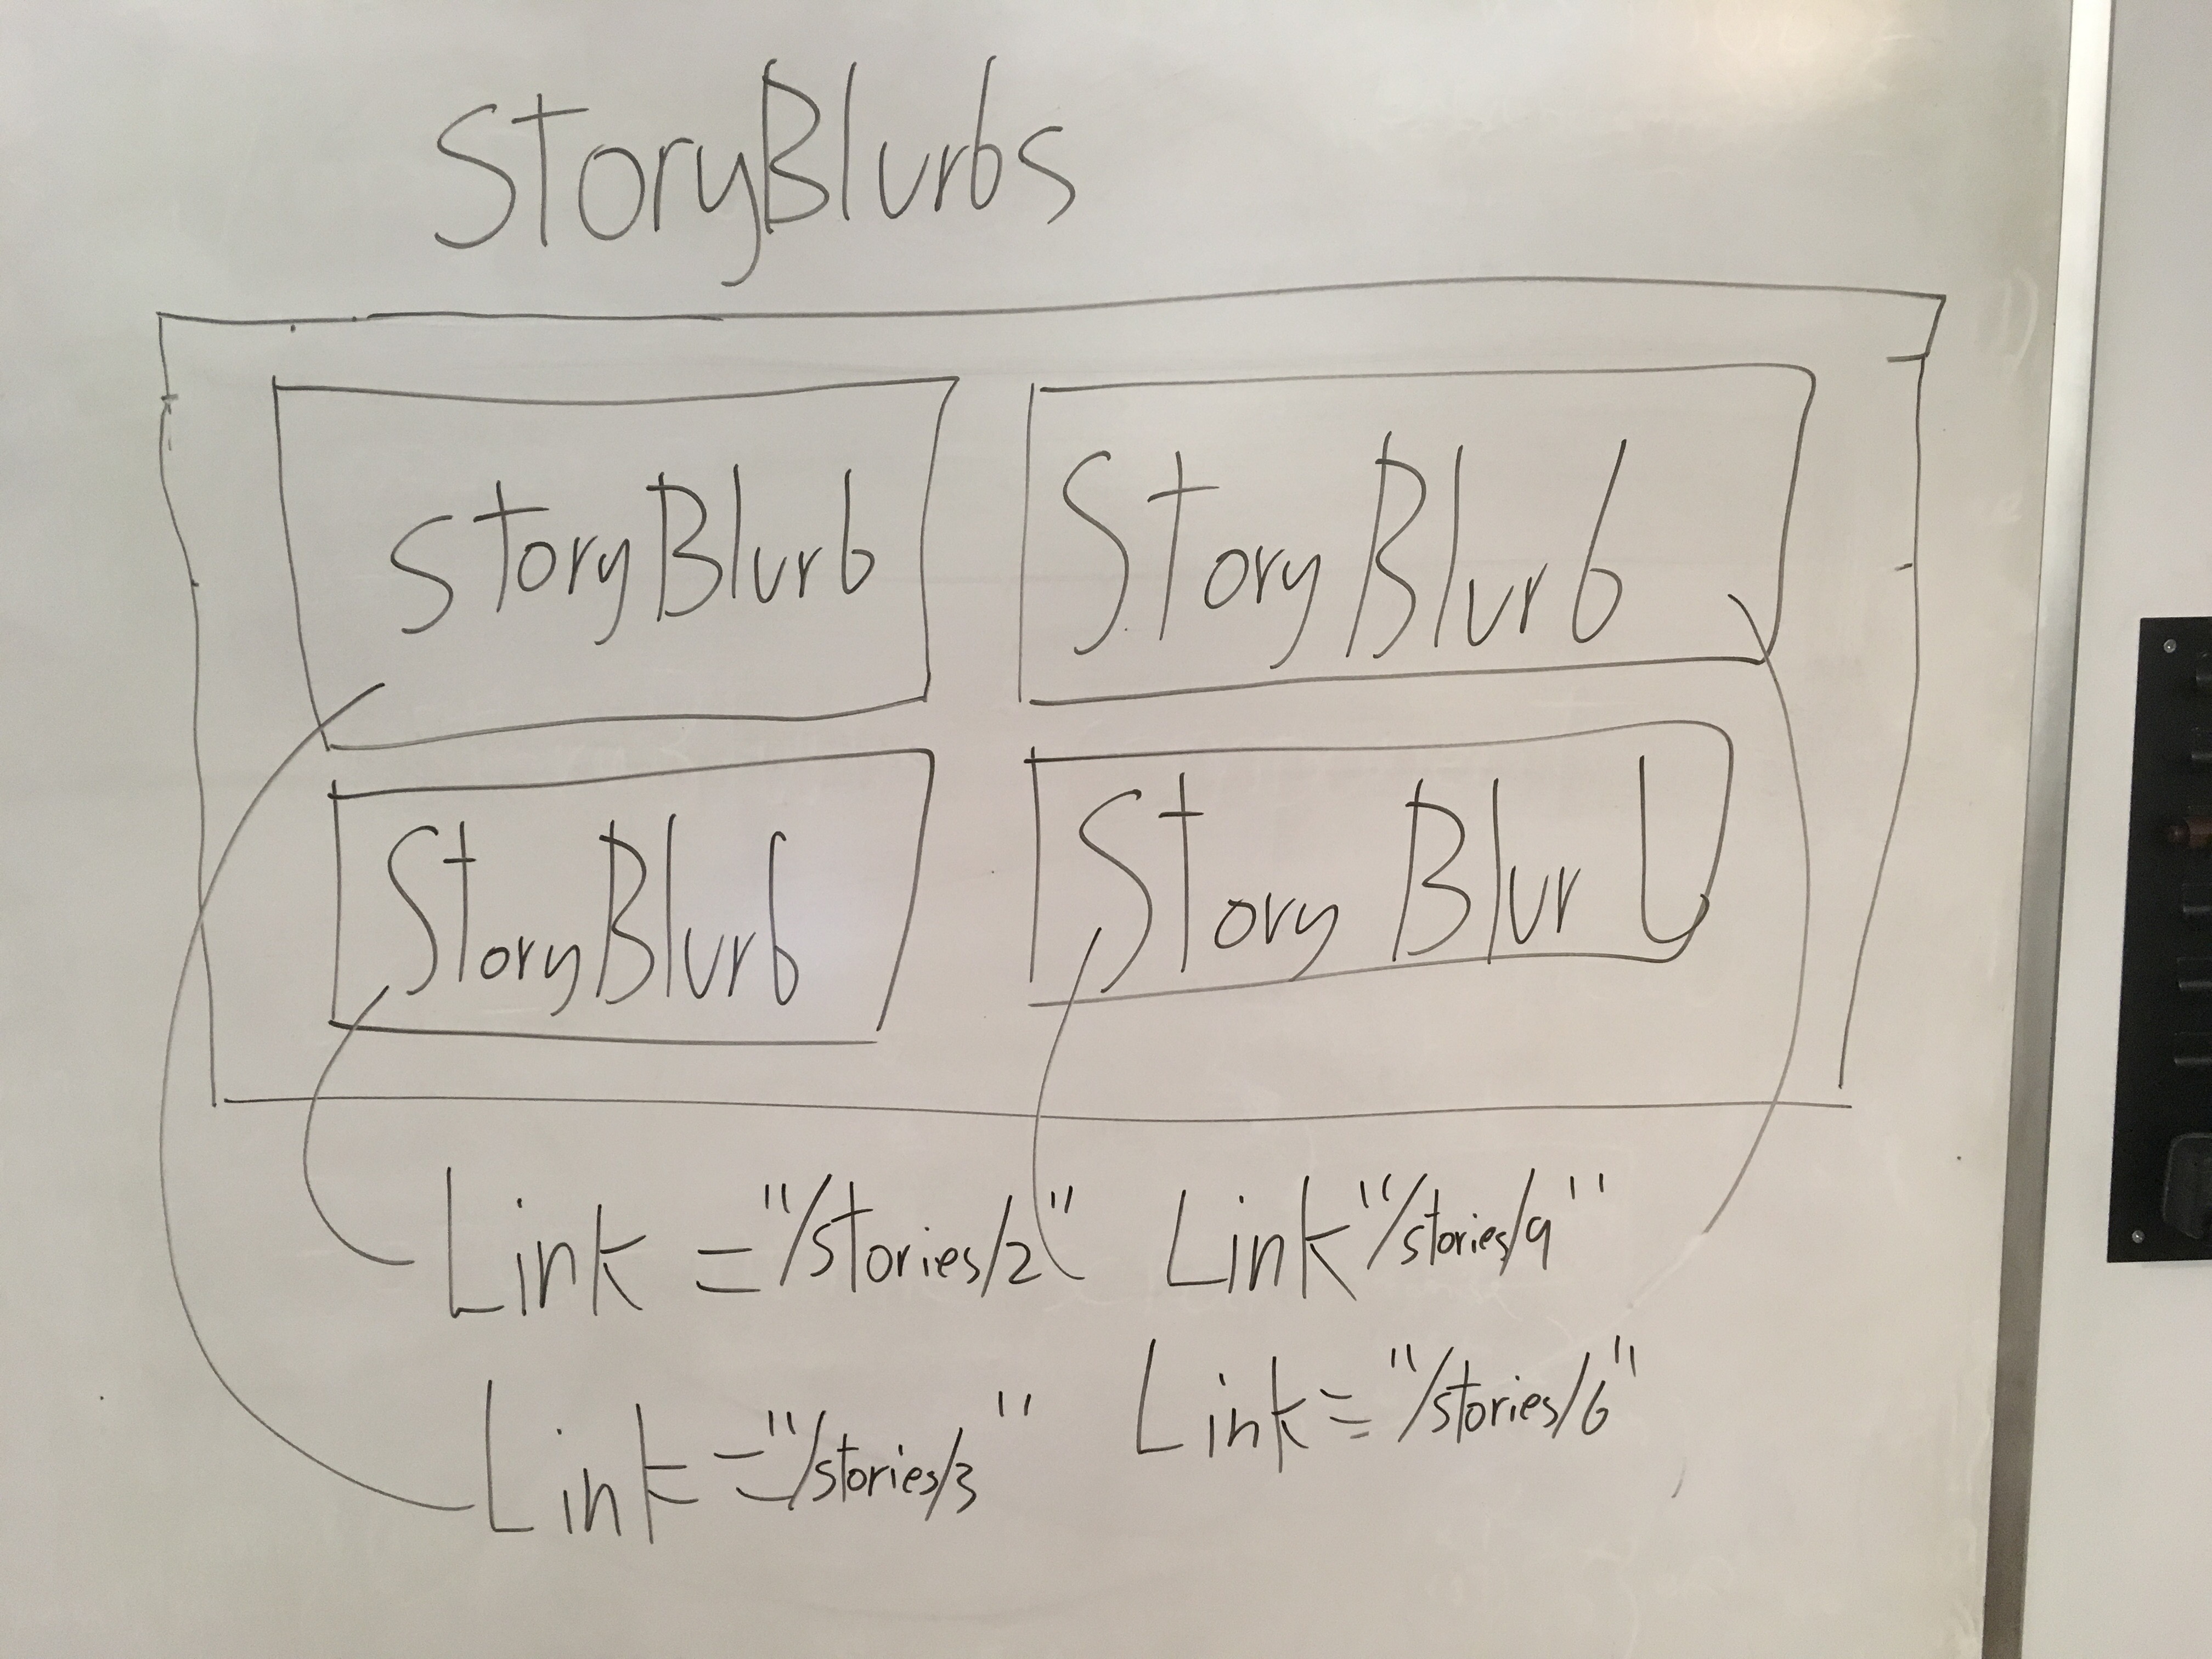 StoryBlurbs
StoryBlurb
StoryBlurb
StoryBlurb
StoryBlurb
Link = "/stories/2"
Link "/stories/9"
Link = "/stories/3"
Link = "/stories/6"